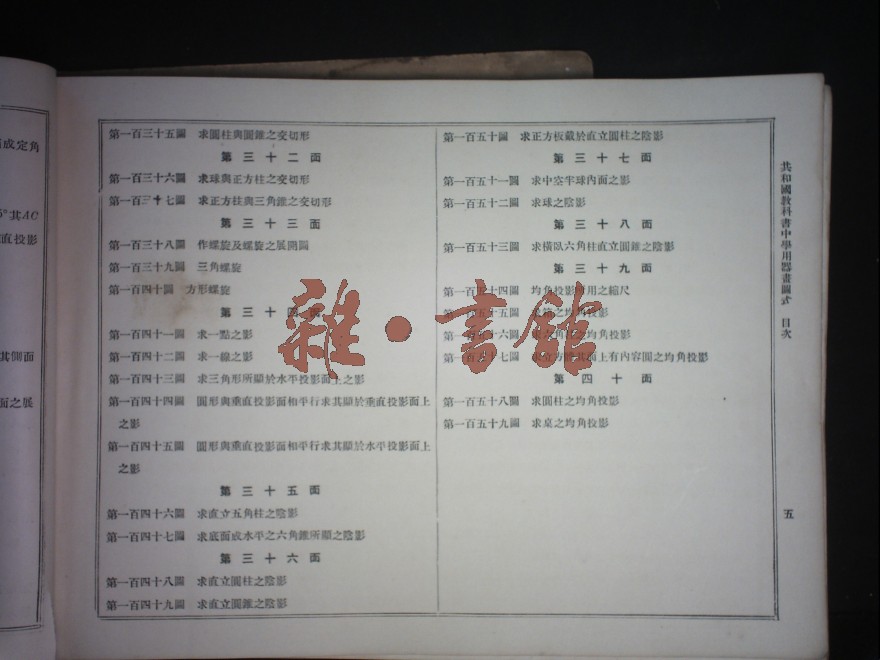 成定角
其AC
直投影
其側面
面之展
第一百三十五圖 求圓柱與圓錐之交切形
第三十二面
第一百三十六圖 求球與正方柱之交切形
第一百三十七圖 求正方柱與三角錐之交切形
第三十三面
第一百三十八圖 作螺旋及螺旋之展開圖
第一百三十九圖 三角螺旋
第一百四十圖 方形螺旋
第三十四面
第一百四十一圖 求一點之影
第一百四十二圖 求一線之影
第一百四十三圖 求三角形所顯於水平投影面上之影
第一百四十四圖 圓形與垂直投影面相平行求其顯於垂直投影面上
之影
第一百四十五圖 圓形與垂直投影面相平行求其顯於水平投影面上
之影
第三十五面
第一百四十六圖 求直立五角柱之陰影
第一百四十七圖 求底面成水平之六角錐所顯之陰影
第三十六面
第一百四十八圖 求直立圓柱之陰影
第一百四十九圖 求直立圓錐之陰影
第一百五十圖 求正方板戴於直立圓柱之陰影
第三十七面
第一百五十一圖 求中空半球內面之影
第一百五十二圖 求球之陰影
第三十八面
第一百五十三圖 求橫臥六角柱直立圓錐之陰影
第三十九面
第一百五十四圖 均角投影所用之縮尺
第一百五十五圖 之均角投影
第一百五十六圖 求六角柱之均角投影
第一百五十七圖 求立方體其面上有內容圓之均角投影
第四十面
第一百五十八圖 求圓柱之均角投影
第一百五十九圖 求桌之均角投影
共和國教科書中學用器畫圖式 目次
五
雜·書館